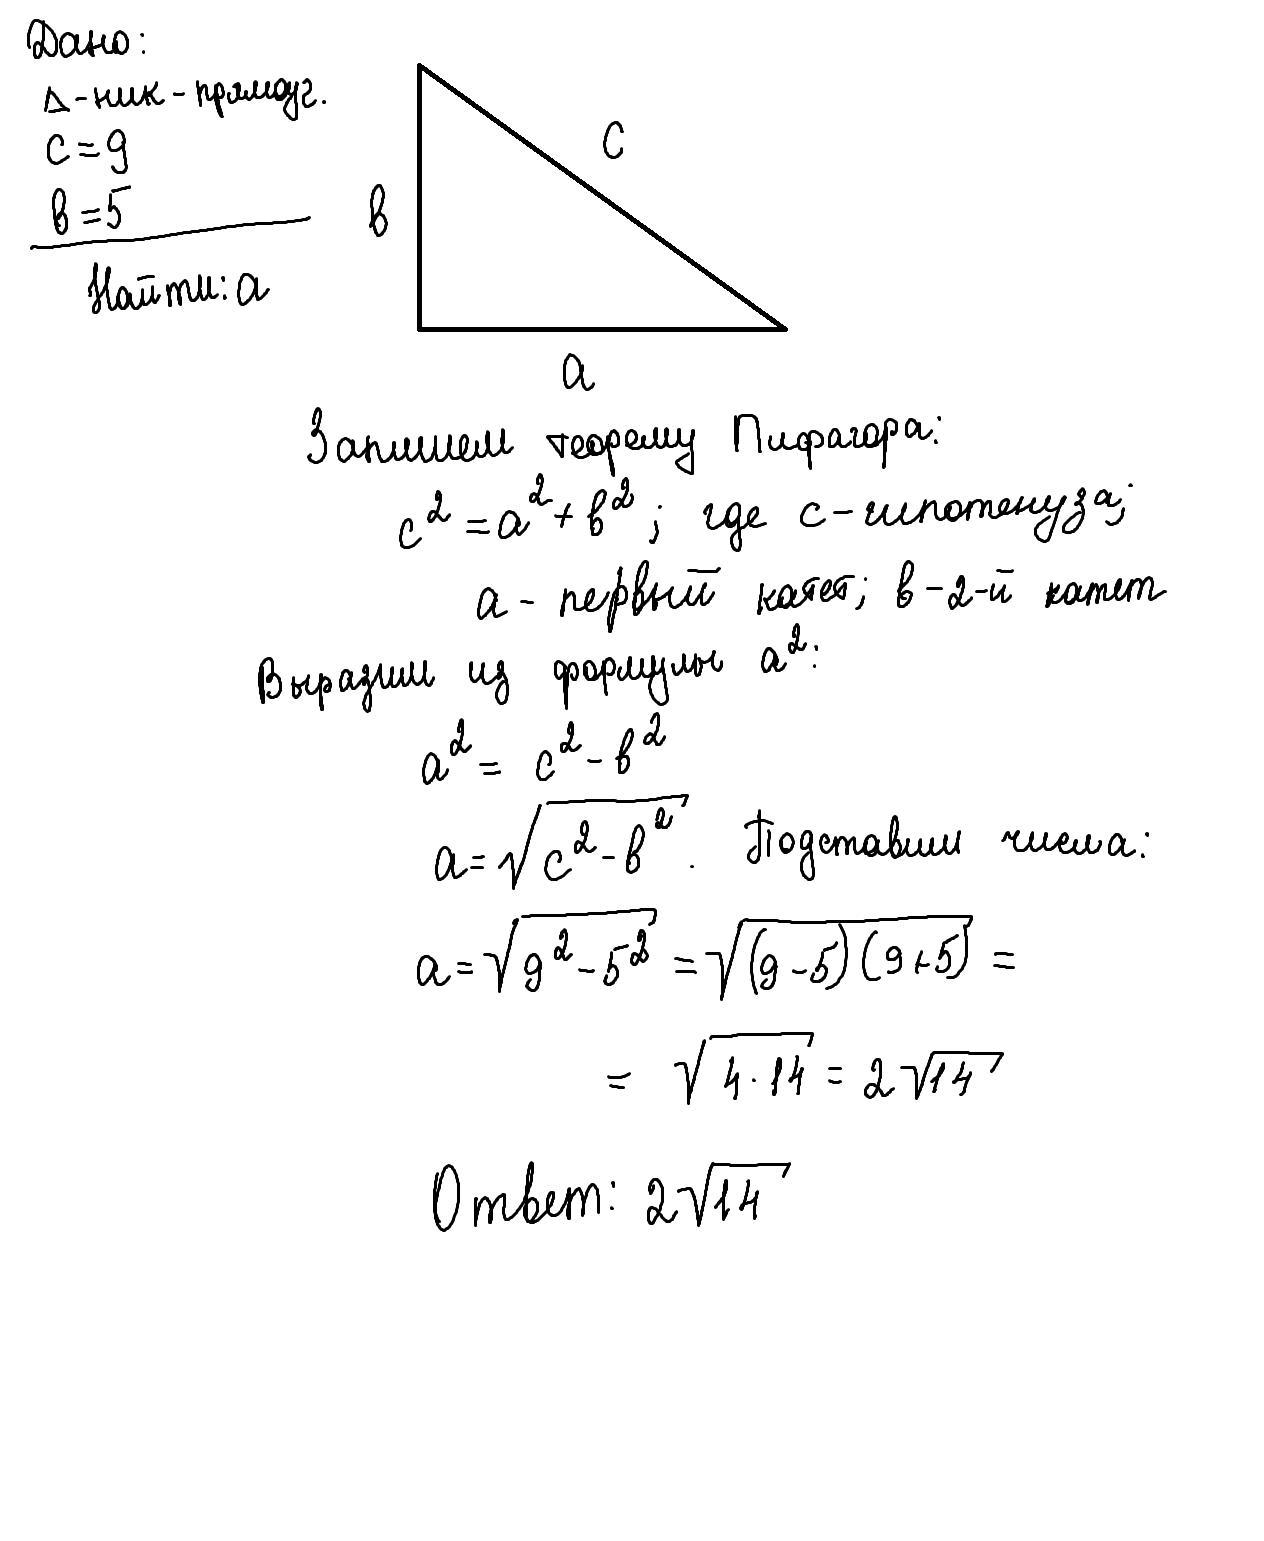 Дано:
Δ-ник - прямоуг.
c = 9
в = 5
Найти: a
в
c
a
Запишем теорему Пифагора:
c² = a² + в² ; где c - гипотенуза;
a - первый катет; в - 2-й катет
Выразим из формулы a²:
a² = c² - в²
a = √(c² - в²) . Подставим числа:
a = √(9² - 5²) = √((9 - 5)(9 + 5)) =
= √(4 · 14) = 2√14
Ответ: 2√14